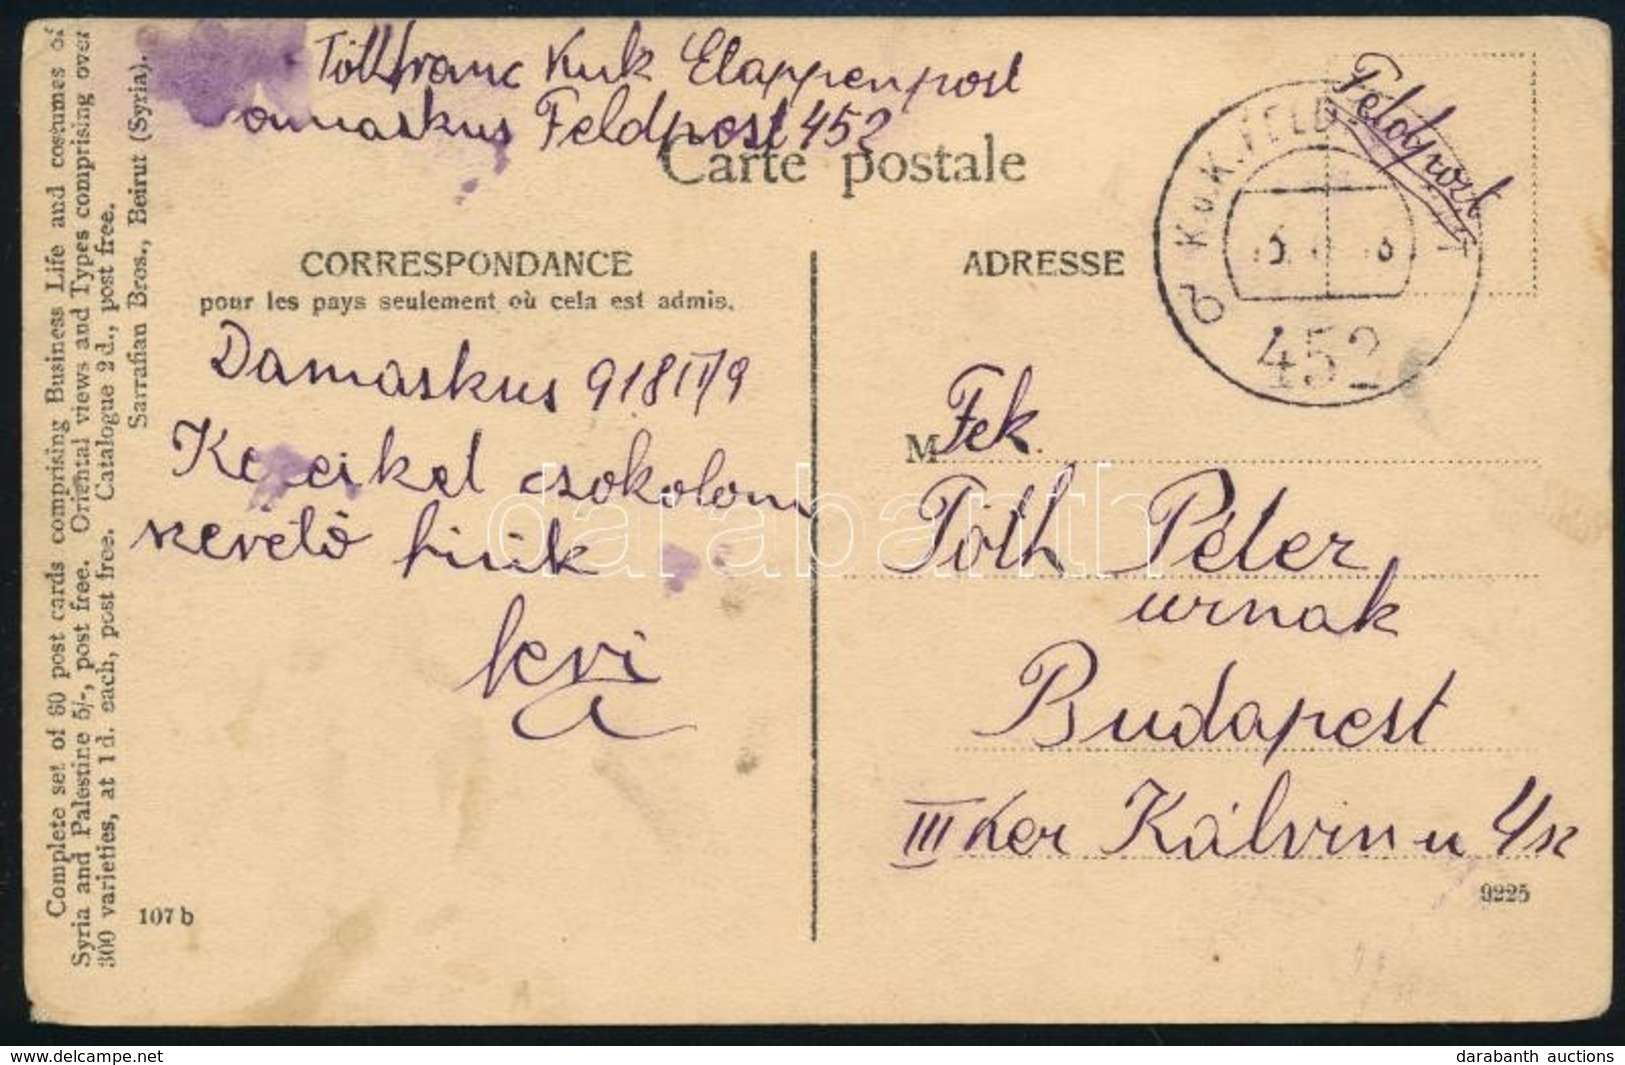 Tóth Franc Kuk Etappenpost
Damaskus Feldpost 452
Carte postale
Feldpost
K.u.K. FELDPOST
452
CORRESPONDANCE
pour les pays seulement où cela est admis.
ADRESSE
Damaskus 918 II/9
csokolom
szerető
M Tek.
Tóth Péter
urnak
Budapest
III ker Kálvin u 4 sz
107 b
9225
Complete set of 60 post cards comprising Business Life and costumes of
Syria and Palestine 5/-, post free. Oriental views and Types comprising over
300 varieties, at 1 d. each, post free. Catalogue 2 d., post free.
Sarrafian Bros., Beirut (Syria).
darabanth
delcampe.net
darabanth auctions